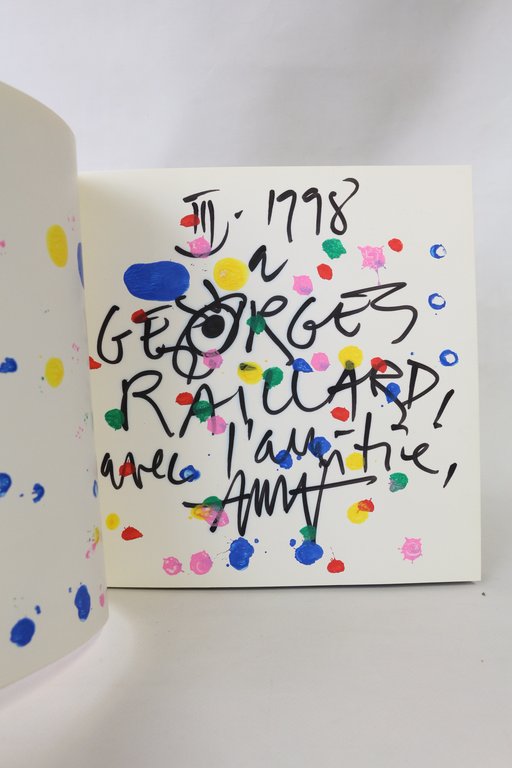 III. 1998
a
GEORGES
RAILLARD,
avec l'amitié,